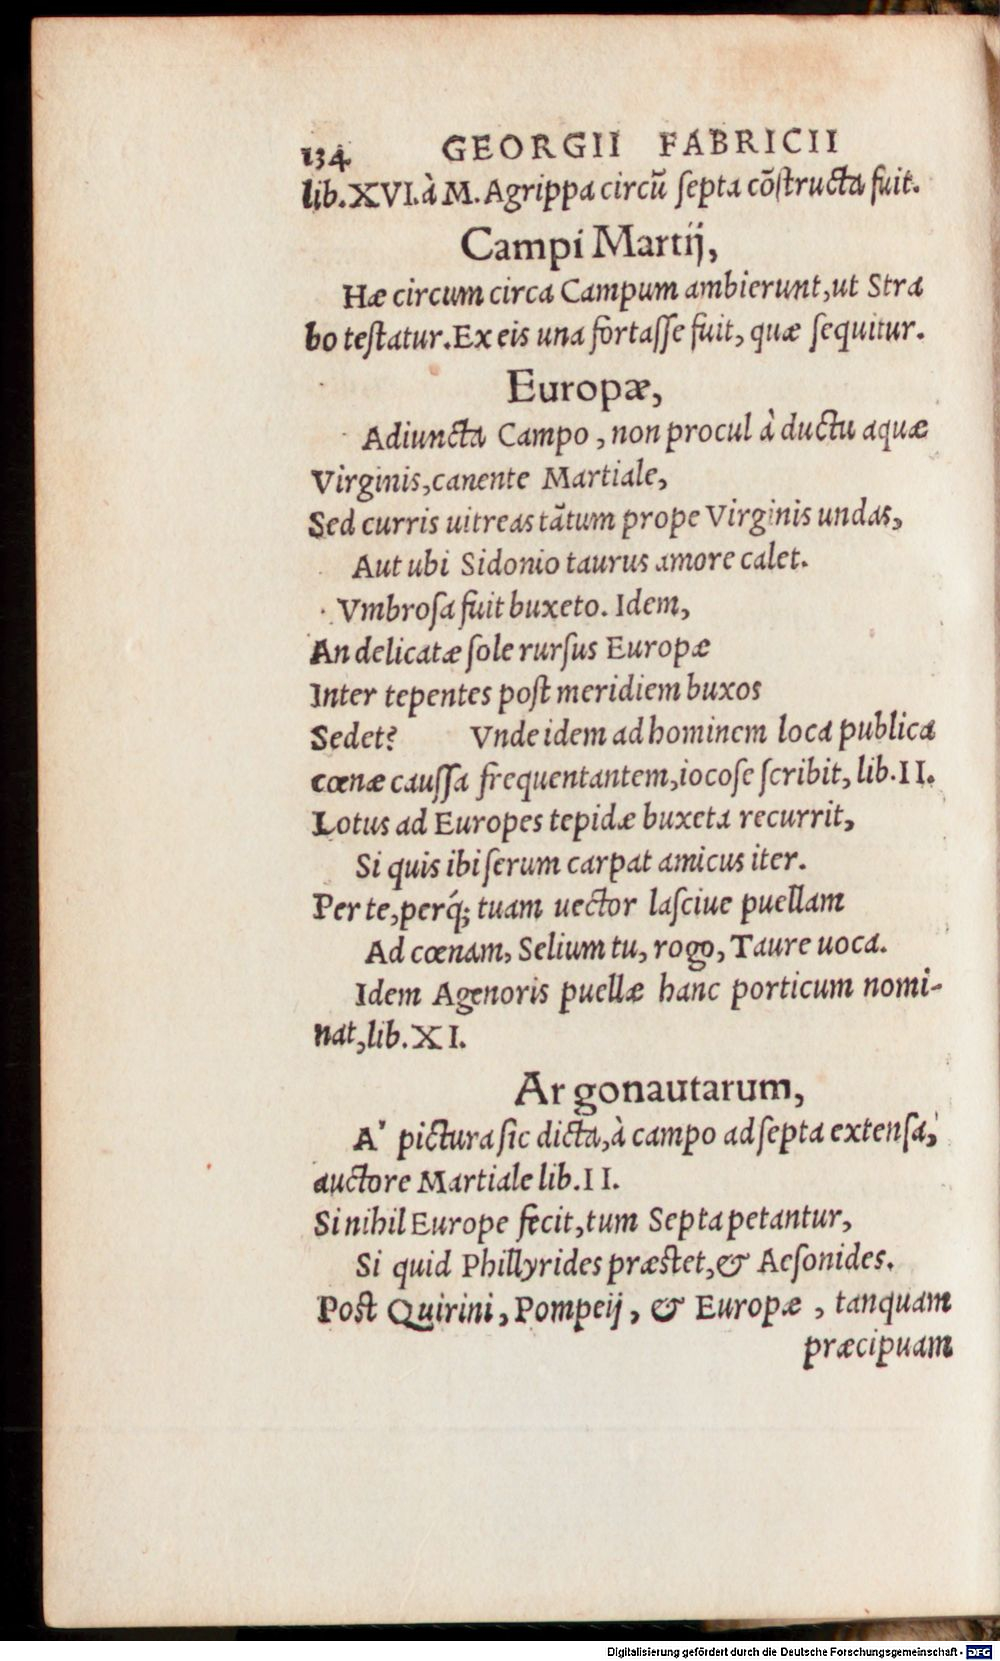 134 GEORGII FABRICII
lib.XVI.à M. Agrippa circũ ſepta cõſtructa fuit.
Campi Martij,
Hæ circum circa Campum ambierunt,ut Stra
bo teſtatur.Ex eis una fortaſſe fuit, quæ ſequitur.
Europæ,
Adiuncta Campo , non procul à ductu aquæ
Virginis,canente Martiale,
Sed curris uitreas tãtum prope Virginis undas,
Aut ubi Sidonio taurus amore calet.
Vmbroſa fuit buxeto. Idem,
An delicatæ ſole rurſus Europæ
Inter tepentes poſt meridiem buxos
Sedet? Vnde idem ad hominem loca publica
cœnæ cauſſa frequentantem,iocoſe ſcribit, lib.II.
Lotus ad Europes tepidæ buxeta recurrit,
Si quis ibi ſerum carpat amicus iter.
Per te,perq́; tuam uector laſciue puellam
Ad cœnam, Selium tu, rogo, Taure uoca.
Idem Agenoris puellæ hanc porticum nomi-
nat,lib.XI.
Argonautarum,
A' pictura ſic dicta,à campo ad ſepta extenſa,
auctore Martiale lib.II.
Si nihil Europe fecit,tum Septa petantur,
Si quid Phillyrides præſtet,& Aeſonides.
Poſt Quirini, Pompeij, & Europæ , tanquam
præcipuam
Digitalisierung gefördert durch die Deutsche Forschungsgemeinschaft - DFG